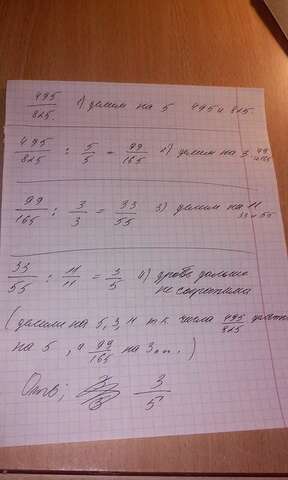 495/825 1) делим на 5 495 и 825.
495/825 : 5/5 = 99/165 2) делим на 3 99 и 165
99/165 : 3/3 = 33/55 3) делим на 11 33 и 55
33/55 : 11/11 = 3/5 4) дробь дальше
не сократима
(делим на 5, 3, 11 т.к числа 495/825 кратны
на 5, а 99/165 на 3...)
Ответ: 3/5